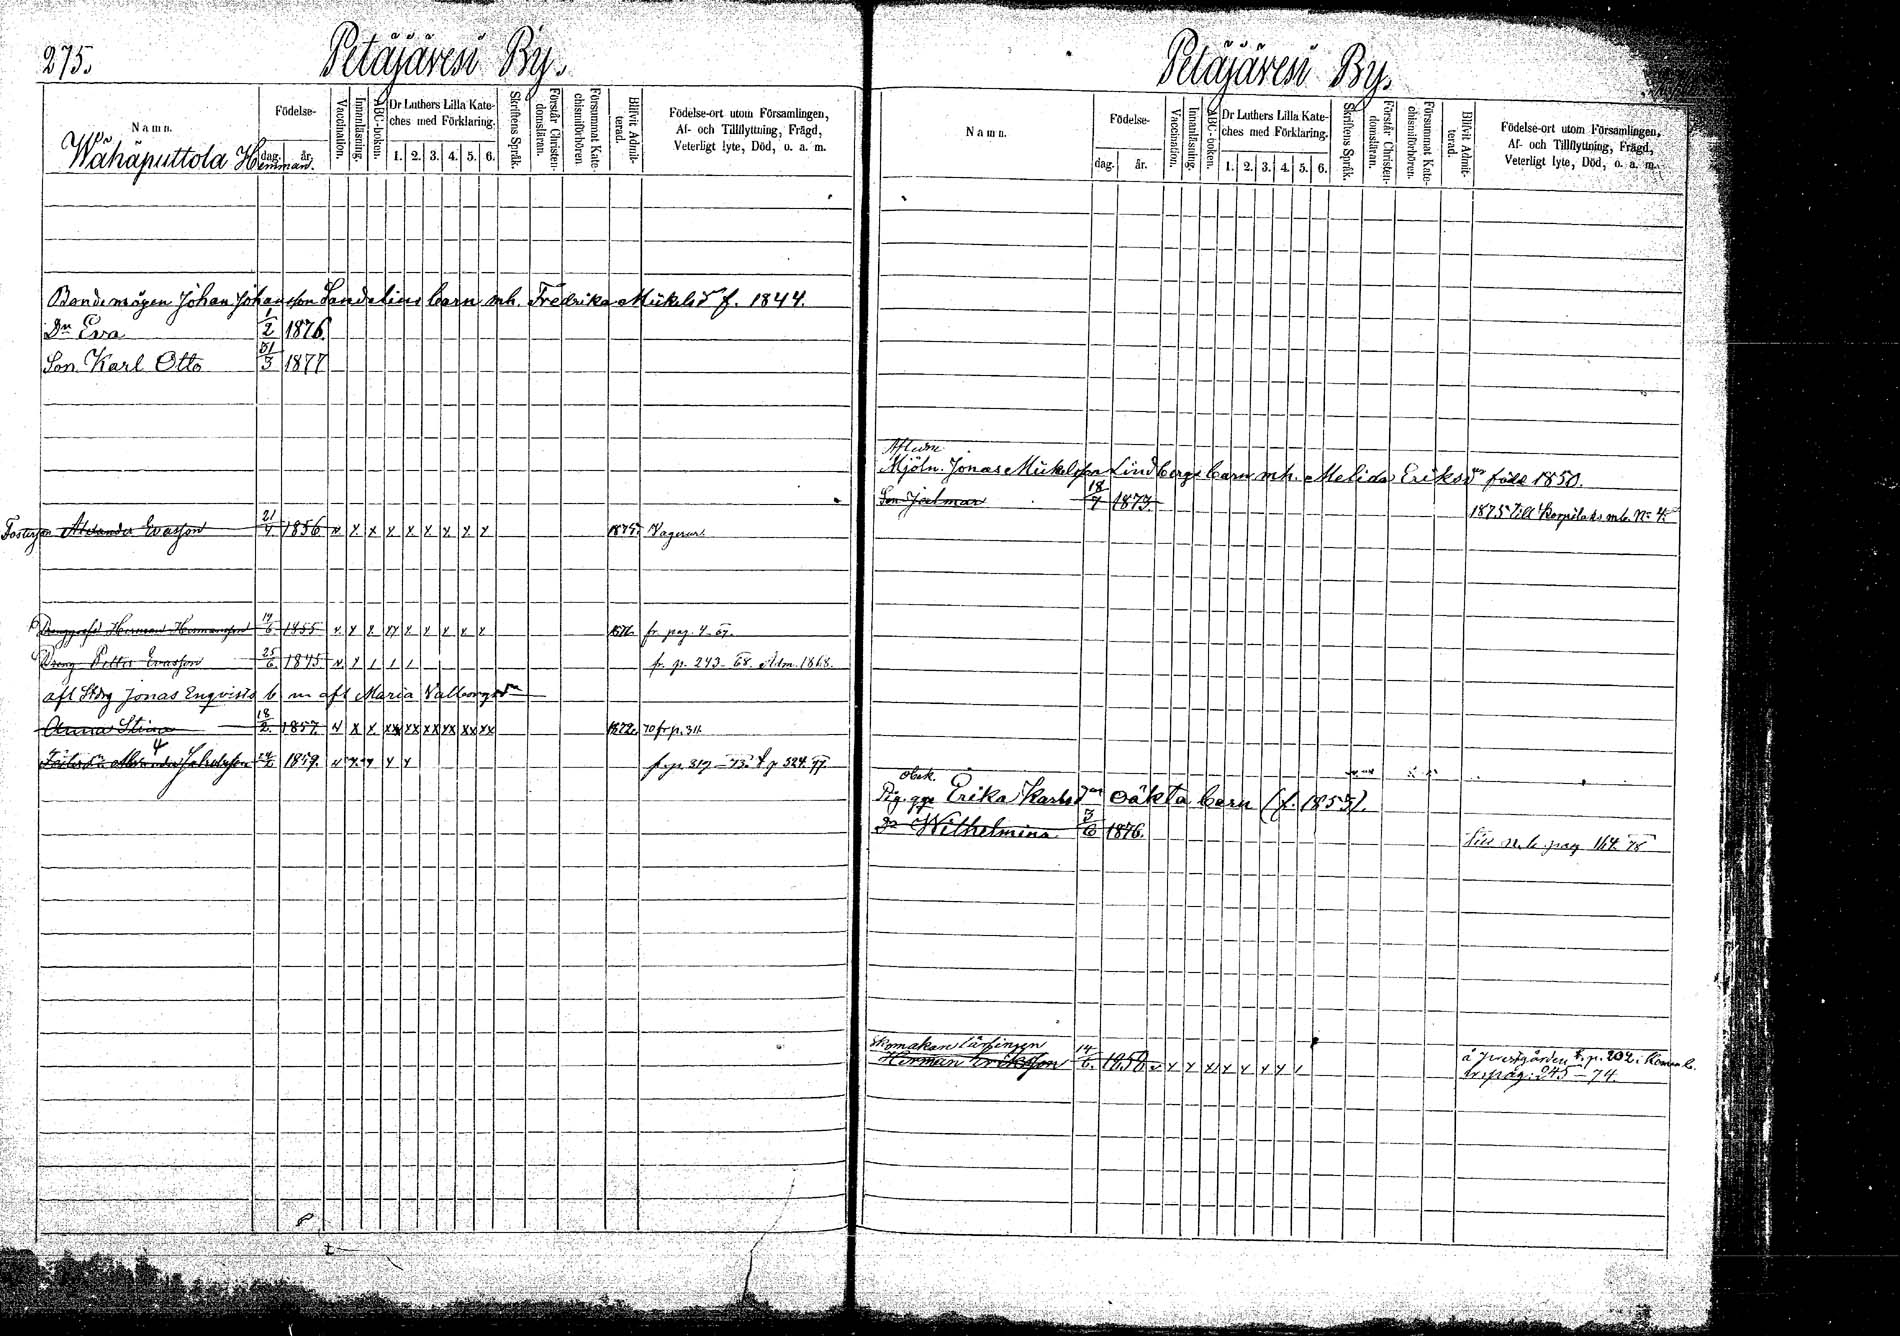 275.
Petäjävesi By.
Namn.
Födelse-
dag. år.
Vaccination.
Innanläsning.
ABC-boken.
Dr Luthers Lilla Kate-
ches med Förklaring.
1. 2. 3. 4. 5. 6.
Skriftens Språk.
Förstår Christen-
domsläran.
Försummat Kate-
chismiförhören.
Blifvit Admit-
terad.
Födelse-ort utom Församlingen,
Af- och Tillflyttning, Frägd,
Veterligt lyte, Död, o. a. m.
Wähäputtola Hemman.
Bondemågen Johan Johansson Sandelius barn mh. Fredrika Mickelsdr f. 1844.
Dr Eva 1/2 1876.
Son Karl Otto 31/3 1877
Fosterson Alexander Evasson 21/4 1856 v x x x x x x x x 1875.
Herman Hermansson 1855 fr. pag. 4-67.
Dreng Petter Evasson 25/6 1845 v x 1 1 1 fr. p. 243-68. Adm. 1868.
afl Jonas Enqvists b m afl Maria Valborgsdr
Anna Stina 18/2. 1857. v x x xx xx xx xx xx xx 1872. 70 fr p. 311.
1859. v x x x x
Petäjävesi By.
Namn.
Födelse-
dag. år.
Vaccination.
Innanläsning.
ABC-boken.
Dr Luthers Lilla Kate-
ches med Förklaring.
1. 2. 3. 4. 5. 6.
Skriftens Språk.
Förstår Christen-
domsläran.
Försummat Kate-
chismiförhören.
Blifvit Admit-
terad.
Födelse-ort utom Församlingen,
Af- och Tillflyttning, Frägd,
Veterligt lyte, Död, o. a. m.
Aflidne
Mjöln. Jonas Mickelsson Lindbergs barn mh. Melida Eriksdr född 1850.
Son Jalmar 18/7 1873. 1875 till Korpilaks mb. No 4.
Obek.
Pig. qge Erika Karlsdr oäkta barn (f. 1855).
Dr Wilhelmina 3/6 1876. Till n. b. pag 164. 78
Skomakare lärlingen
Herman Eriksson 14/6. 1850 v x x x x x x x 1 å prestgården t. p. 202 i Komm b.
fr. pag: 245-74.